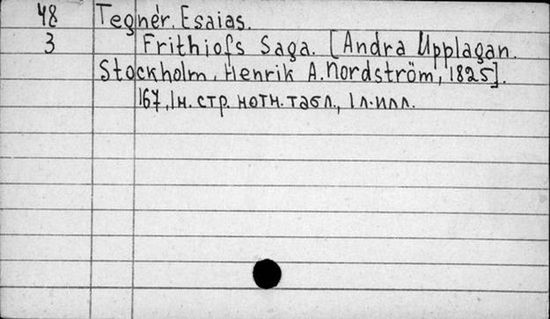 48 Tegnér. Esaias.
3 Frithiofs Saga. [Andra Upplagan.
Stockholm, Henrik A. Nordström, 1825].
167, 1 н. стр. нотн. табл., 1 л. илл.